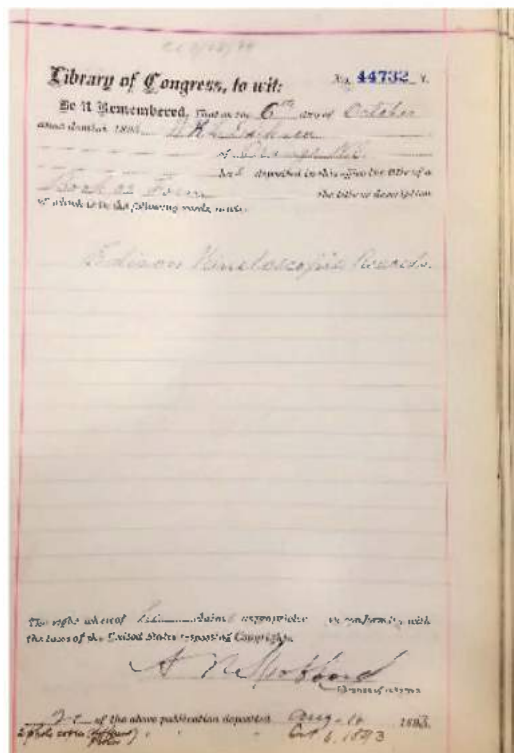 Library of Congress, to wit: No. 44732 Y.
Be it Remembered, That on the 6th day of October
anno domini 1893 W.K.L. Dickson
of Orange N.J.
has deposited in this office the title of a
Book or Form the title or description
of which is in the following words, to wit:
Edison Kinetoscopic Records.
The right whereof he claims as proprietor in conformity with
the laws of the United States respecting Copyrights.
A R Spofford
Librarian of Congress
2 c. of the above publication deposited Aug. 16 1893.
Oct 6, 1893